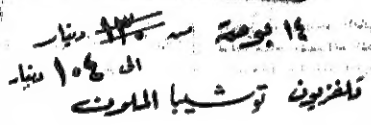 ١٤ بوصة من ٢٣٠ دينار
الى ١٠٤ دينار
تلفزيون توشيبا الملون